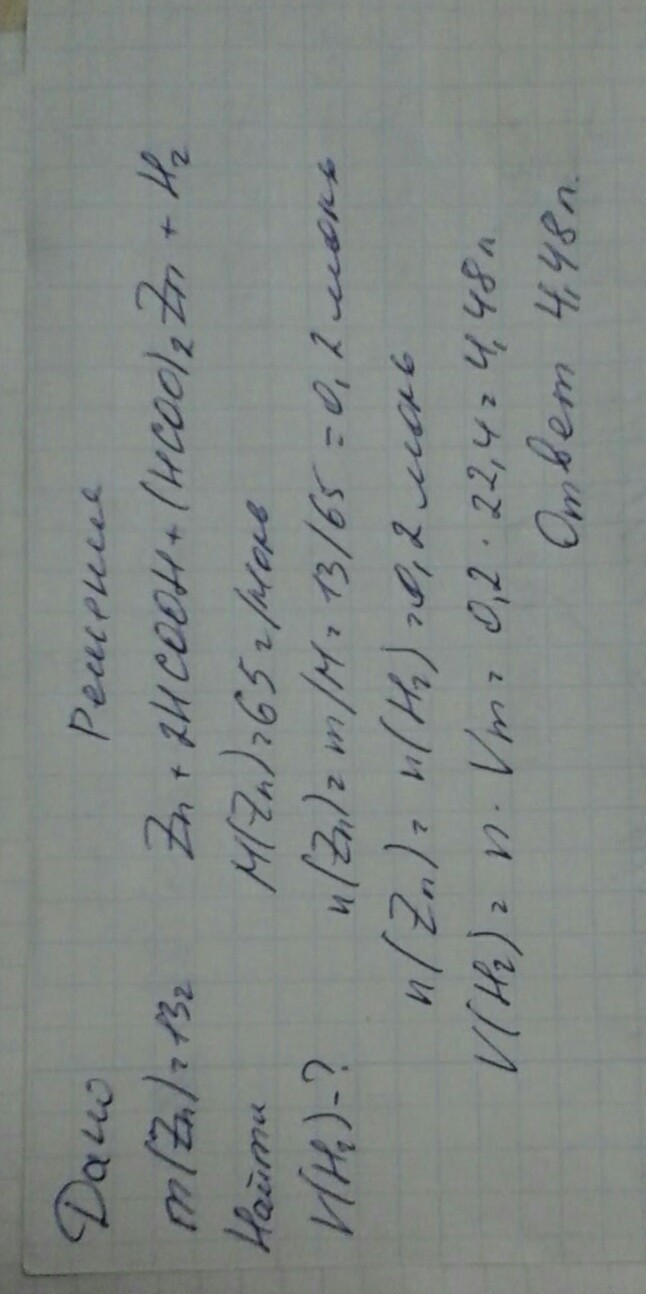 Дано
m(Zn)=13г
Найти
V(H₂)-?
Решение
Zn + 2HCOOH → (HCOO)₂Zn + H₂
M(Zn)=65г/моль
n(Zn)=m/M=13/65=0,2 моль
n(Zn)=n(H₂)=0,2 моль
V(H₂)=n·Vm=0,2·22,4=4,48л
Ответ 4,48л.